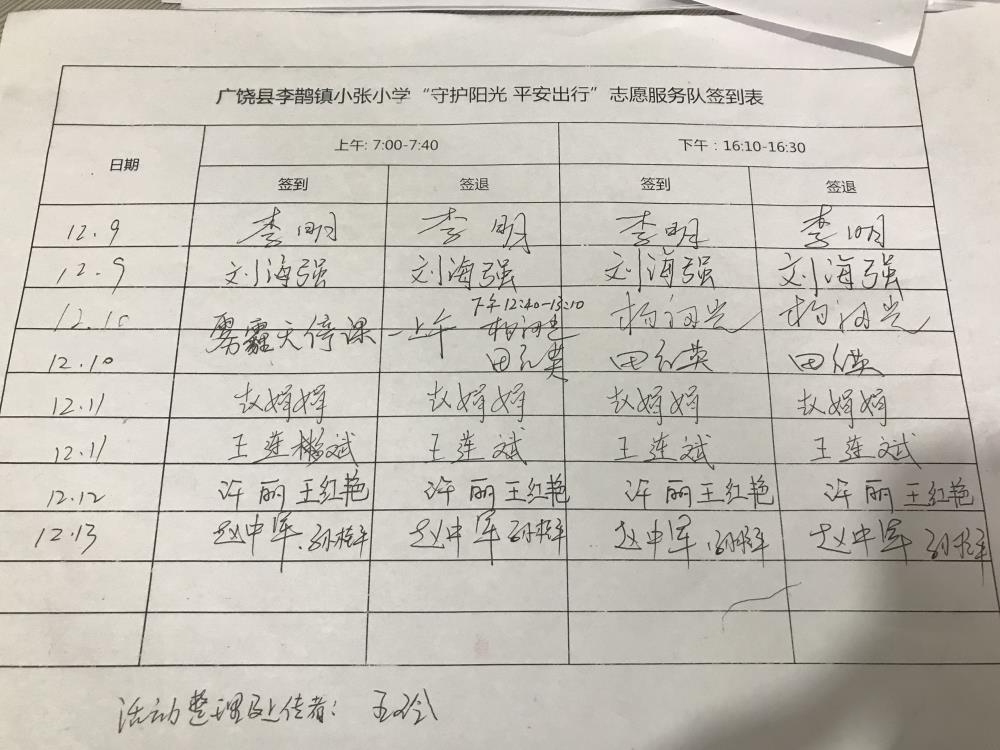 广饶县李鹊镇小张小学“守护阳光 平安出行”志愿服务队签到表
日期 上午: 7:00-7:40 下午：16:10-16:30
签到 签退 签到 签退
12.9 李明 李明 李明 李明
12.9 刘海强 刘海强 刘海强 刘海强
下午12:40-13:10
12.10 雾霾天停课 一上午
12.10 田红英 田红英 田红英
12.11 赵娟娟 赵娟娟 赵娟娟 赵娟娟
12.11 王莲斌 王莲斌 王莲斌 王莲斌
12.12 许丽 王红艳 许丽 王红艳 许丽 王红艳 许丽 王红艳
12.13 赵中军 赵中军 赵中军 赵中军
活动整理及上传者：王玲